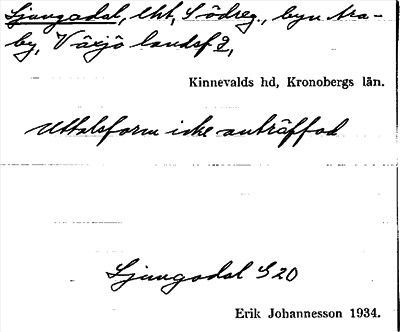 Ljungadal, lht, Södreg., byn Ara-
by, Växjö landsf 2,
Kinnevalds hd, Kronobergs län.
Uttalsform icke anträffad
Ljungadal S 20
Erik Johannesson 1934.